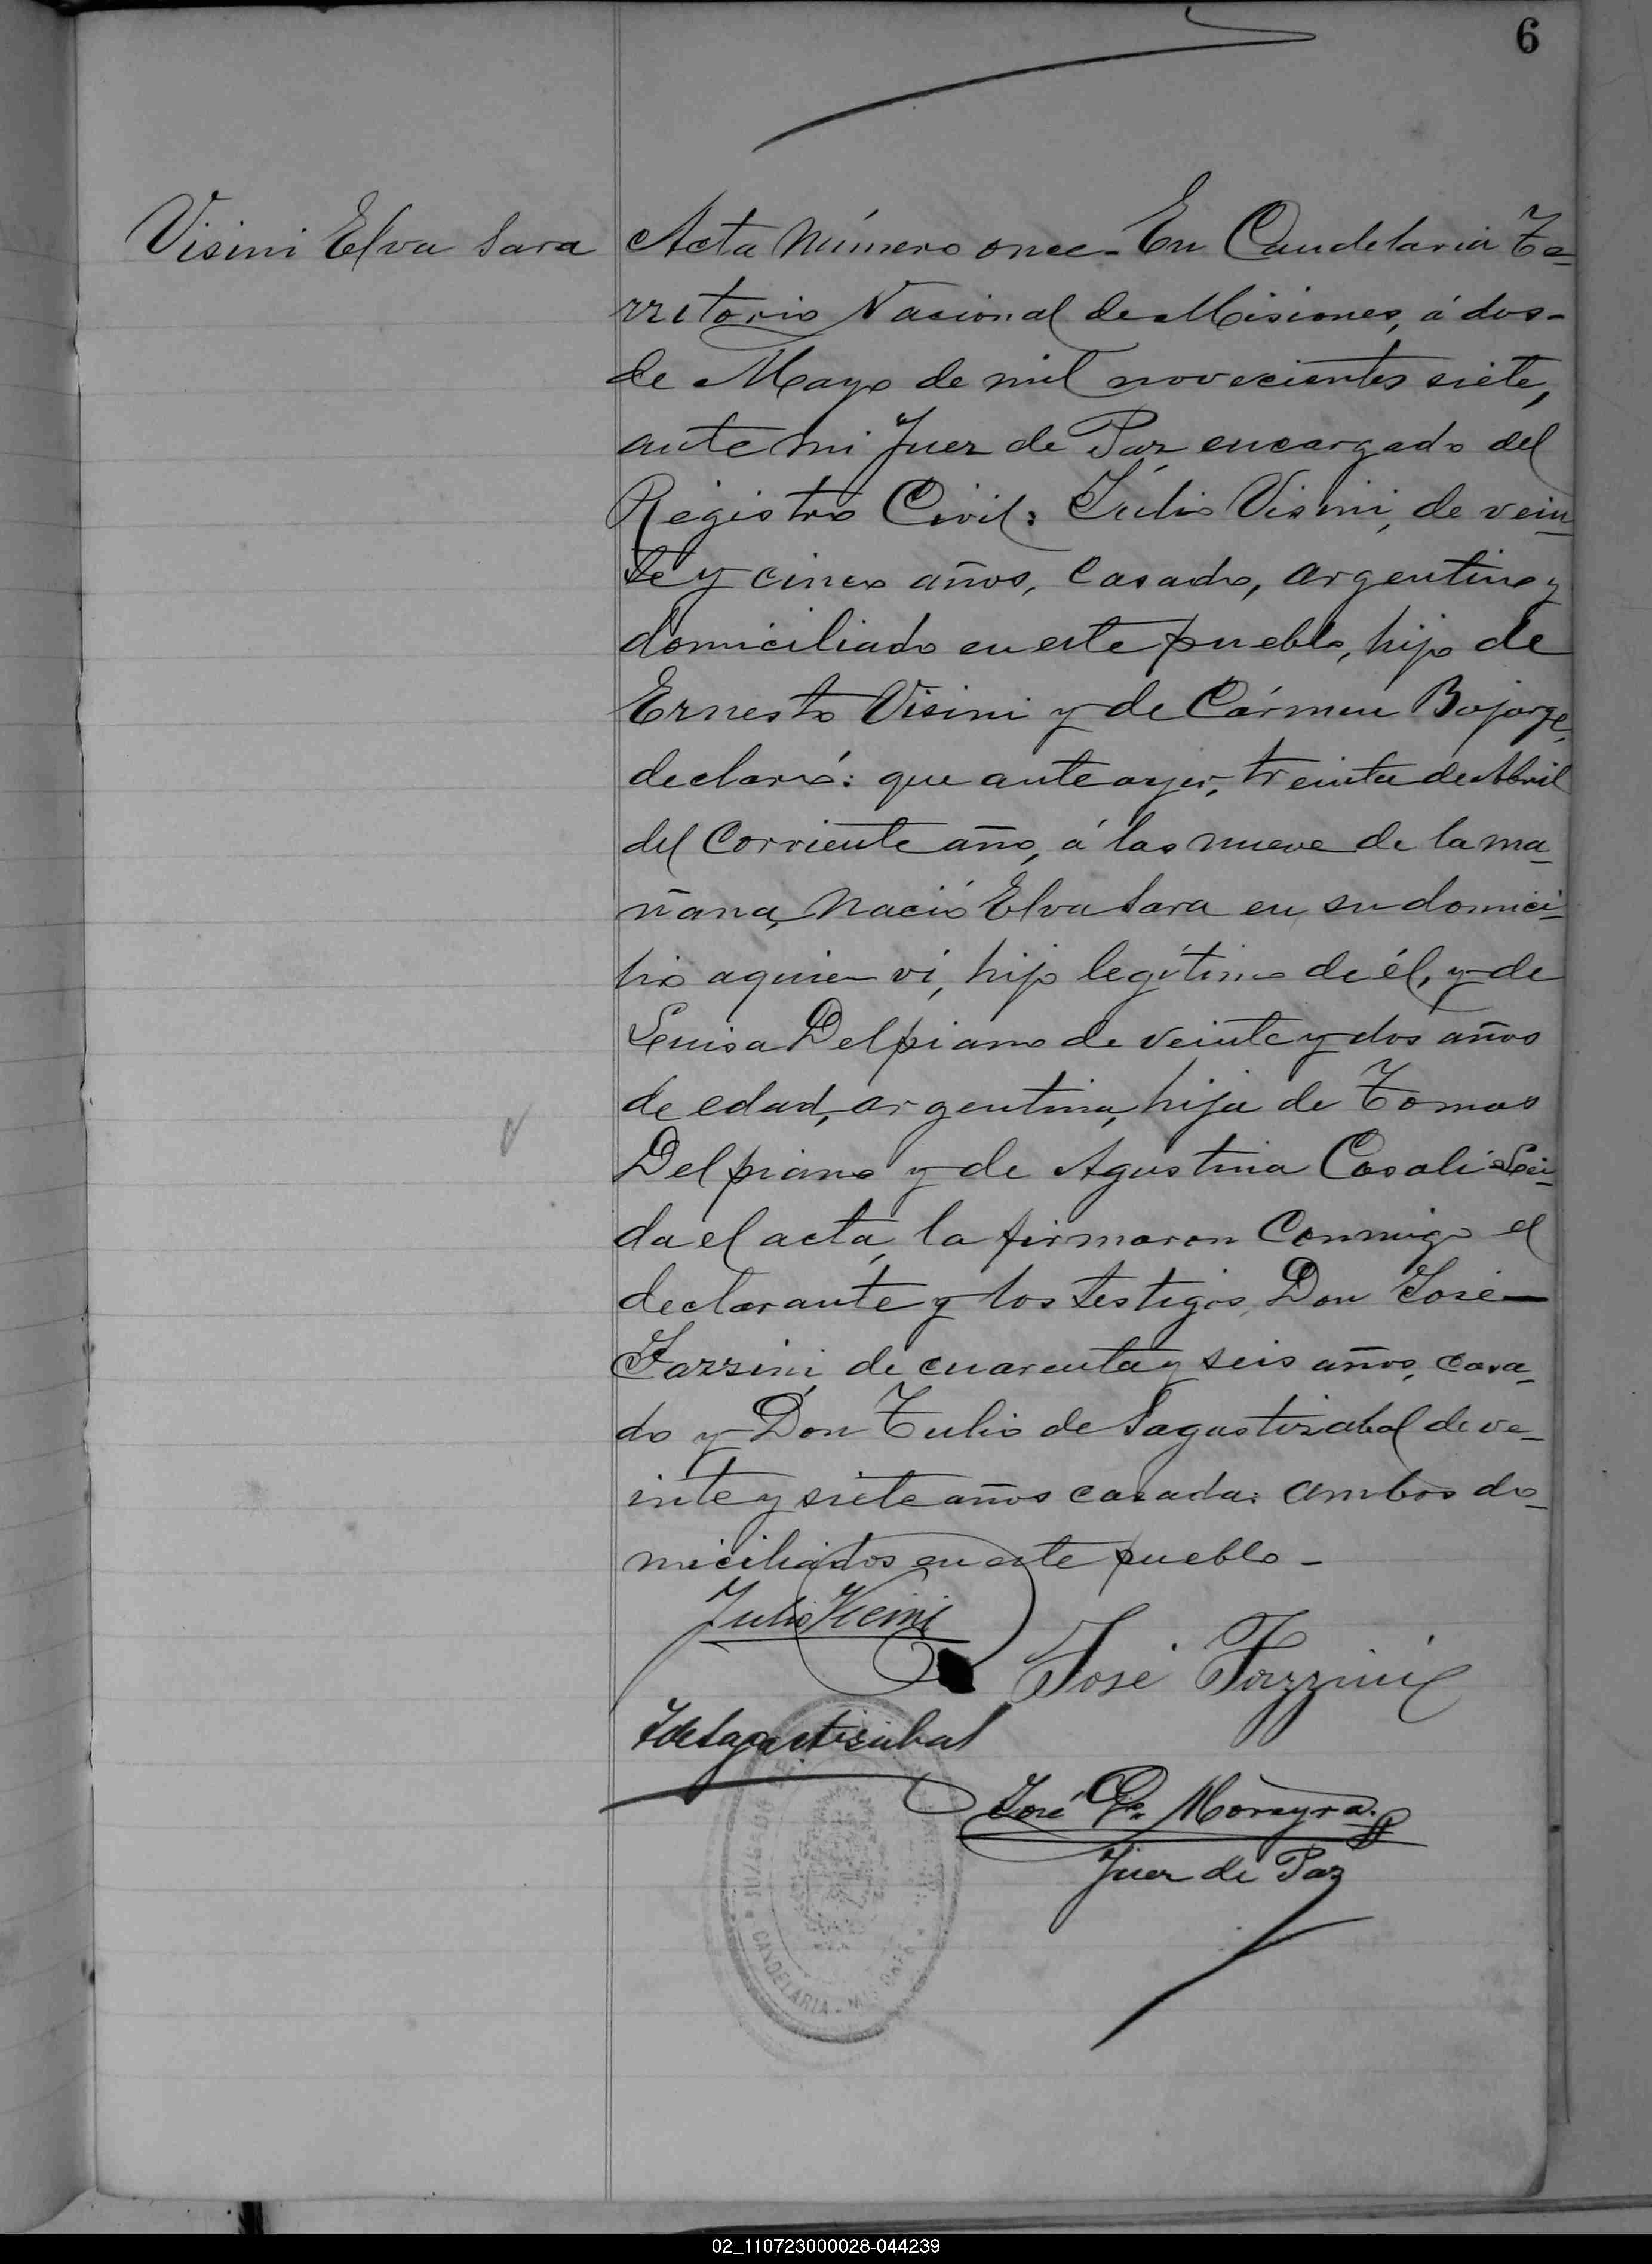 6
Visini Elva Sara
Acta Número once - En Candelaria Te=
rritorio Nacional de Misiones, á dos -
de Mayo de mil novecientos siete,
ante mi Juez de Paz encargado del
Registro Civil: Julio Visini, de vein=
te y cinco años, casado, argentino y
domiciliado en este pueblo, hijo de
Ernesto Visini y de Cármen Bojorge,
declaró: que anteayer, treinta de Abril
del corriente año, á las nueve de la ma=
ñana, nació Elva Sara en su domici=
lio a quien ví, hijo legítimo de él, y de
Luisa Delpiano de veinte y dos años
de edad, argentina, hija de Tomas
Delpiano y de Agustina Casali = Leí=
da el acta, la firmaron conmigo el
declarante y los testigos, Don José —
Fazzini, de cuarenta y seis años, casa=
do y Don Tulio de Sagastizabal de ve=
inte y siete años casada: ambos do=
miciliados en este pueblo -
Julio Visini
José Fazzini
T de Sagastizabal
José Moreyra
Juez de Paz
JUZGADO DE
CANDELARIA - MISIONES
02_110723000028-044239